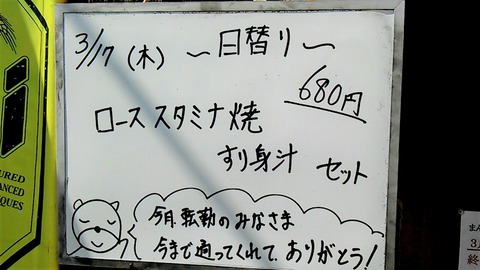 3/17 (木) ～日替り～
680円
ロース スタミナ焼
すり身汁 セット
今月、転勤のみなさま
今まで通ってくれて、ありがとう!
i
URED
ANCED
IQUES
まん
3月
終